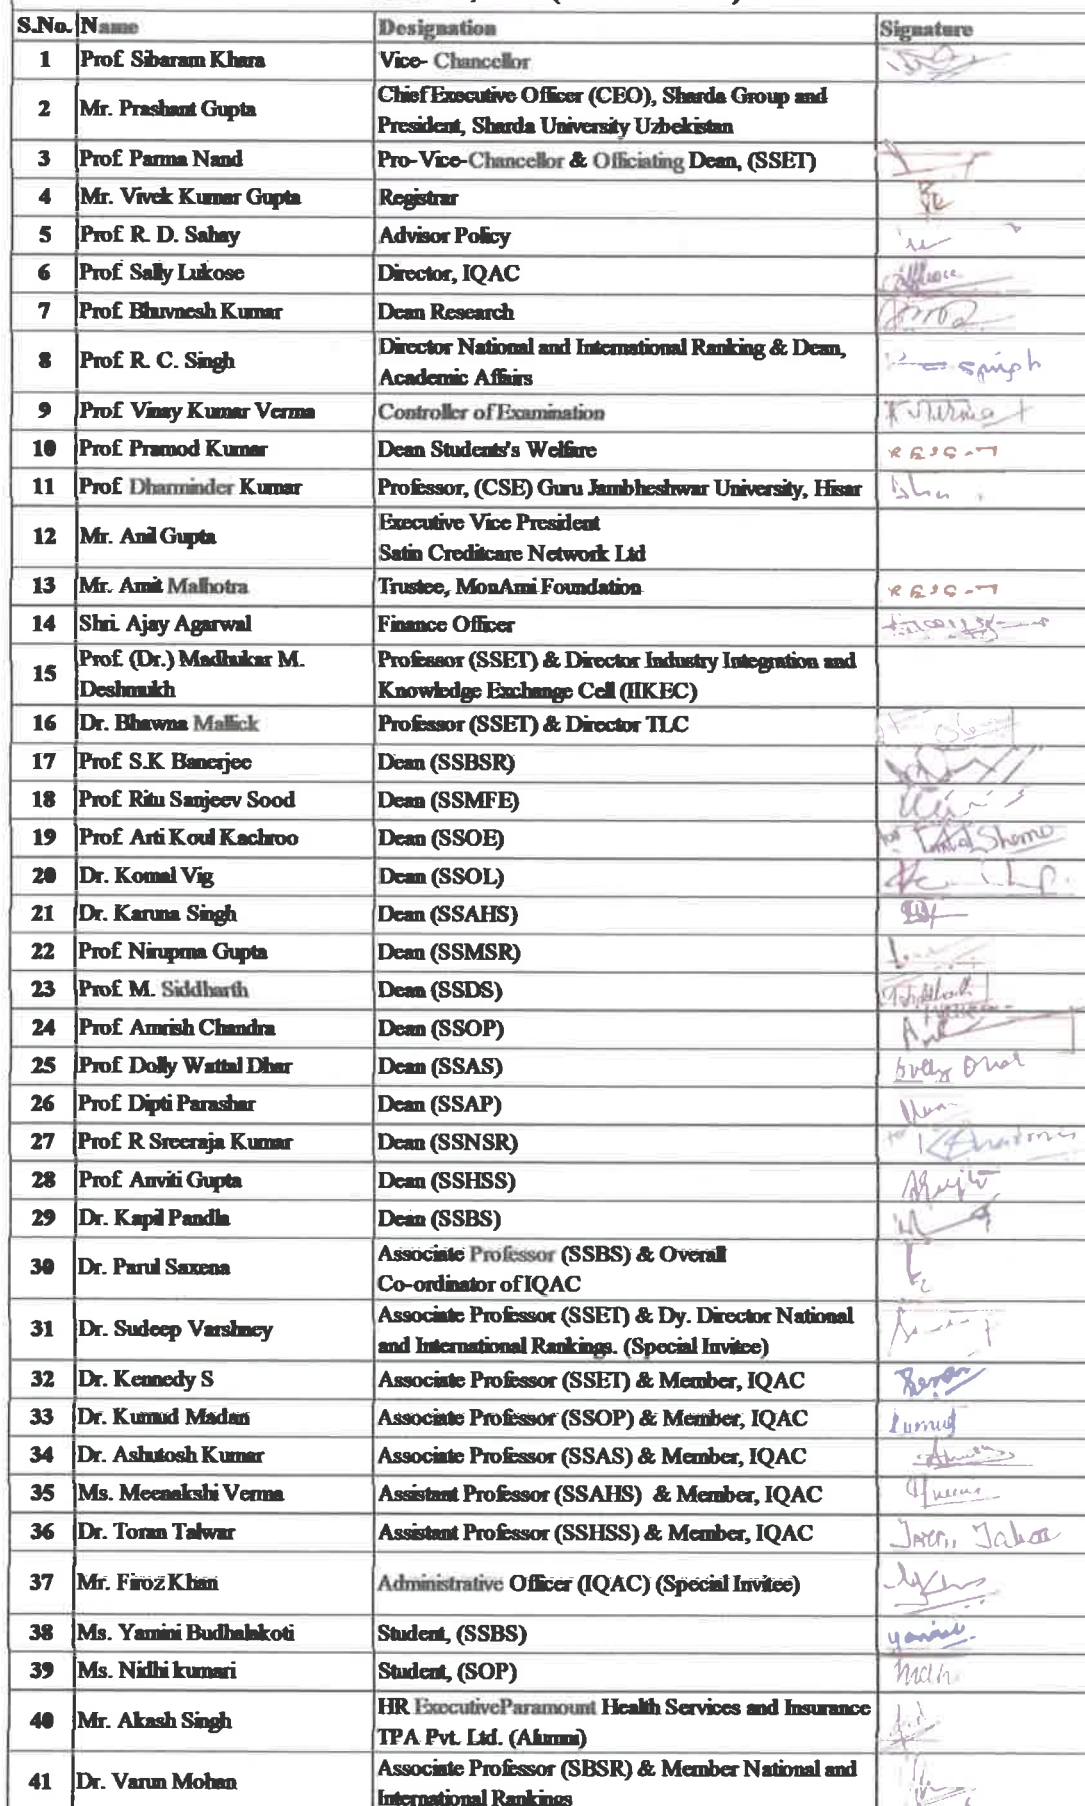 S.No. Name Designation Signature
1 Prof. Sibaram Khara Vice- Chancellor
2 Mr. Prashant Gupta Chief Executive Officer (CEO), Sharda Group and
President, Sharda University Uzbekistan
3 Prof. Parma Nand Pro-Vice-Chancellor & Officiating Dean, (SSET)
4 Mr. Vivek Kumar Gupta Registrar
5 Prof. R. D. Sahay Advisor Policy
6 Prof. Sally Lukose Director, IQAC
7 Prof. Bhuvnesh Kumar Dean Research
8 Prof. R. C. Singh Director National and International Ranking & Dean,
Academic Affairs
9 Prof. Vinay Kumar Verma Controller of Examination
10 Prof. Pramod Kumar Dean Students's Welfare
11 Prof. Dharminder Kumar Professor, (CSE) Guru Jambheshwar University, Hisar
12 Mr. Anil Gupta Executive Vice President
Satin Creditcare Network Ltd
13 Mr. Amit Malhotra Trustee, MonAmi Foundation
14 Shri. Ajay Agarwal Finance Officer
15 Prof. (Dr.) Madhukar M.
Deshmukh Professor (SSET) & Director Industry Integration and
Knowledge Exchange Cell (IIKEC)
16 Dr. Bhawna Mallick Professor (SSET) & Director TLC
17 Prof. S.K. Banerjee Dean (SSBSR)
18 Prof. Ritu Sanjeev Sood Dean (SSMFE)
19 Prof. Arti Koul Kachroo Dean (SSOE)
20 Dr. Komal Vig Dean (SSOL)
21 Dr. Karuna Singh Dean (SSAHS)
22 Prof. Nirupma Gupta Dean (SSMSR)
23 Prof. M. Siddharth Dean (SSDS)
24 Prof. Amrish Chandra Dean (SSOP)
25 Prof. Dolly Wattal Dhar Dean (SSAS) Dolly Dhar
26 Prof. Dipti Parashar Dean (SSAP)
27 Prof. R Sreeraja Kumar Dean (SSNSR)
28 Prof. Anviti Gupta Dean (SSHSS)
29 Dr. Kapil Pandla Dean (SSBS)
30 Dr. Parul Saxena Associate Professor (SSBS) & Overall
Co-ordinator of IQAC
31 Dr. Sudeep Varshney Associate Professor (SSET) & Dy. Director National
and International Rankings. (Special Invitee)
32 Dr. Kennedy S Associate Professor (SSET) & Member, IQAC
33 Dr. Kumud Madan Associate Professor (SSOP) & Member, IQAC Kumud
34 Dr. Ashutosh Kumar Associate Professor (SSAS) & Member, IQAC
35 Ms. Meenakshi Verma Assistant Professor (SSAHS) & Member, IQAC
36 Dr. Toran Talwar Assistant Professor (SSHSS) & Member, IQAC
37 Mr. Firoz Khan Administrative Officer (IQAC) (Special Invitee)
38 Ms. Yamini Budhalakoti Student, (SSBS)
39 Ms. Nidhi kumari Student, (SOP)
40 Mr. Akash Singh HR ExecutiveParamount Health Services and Insurance
TPA Pvt. Ltd. (Alumni)
41 Dr. Varun Mohan Associate Professor (SBSR) & Member National and
International Rankings